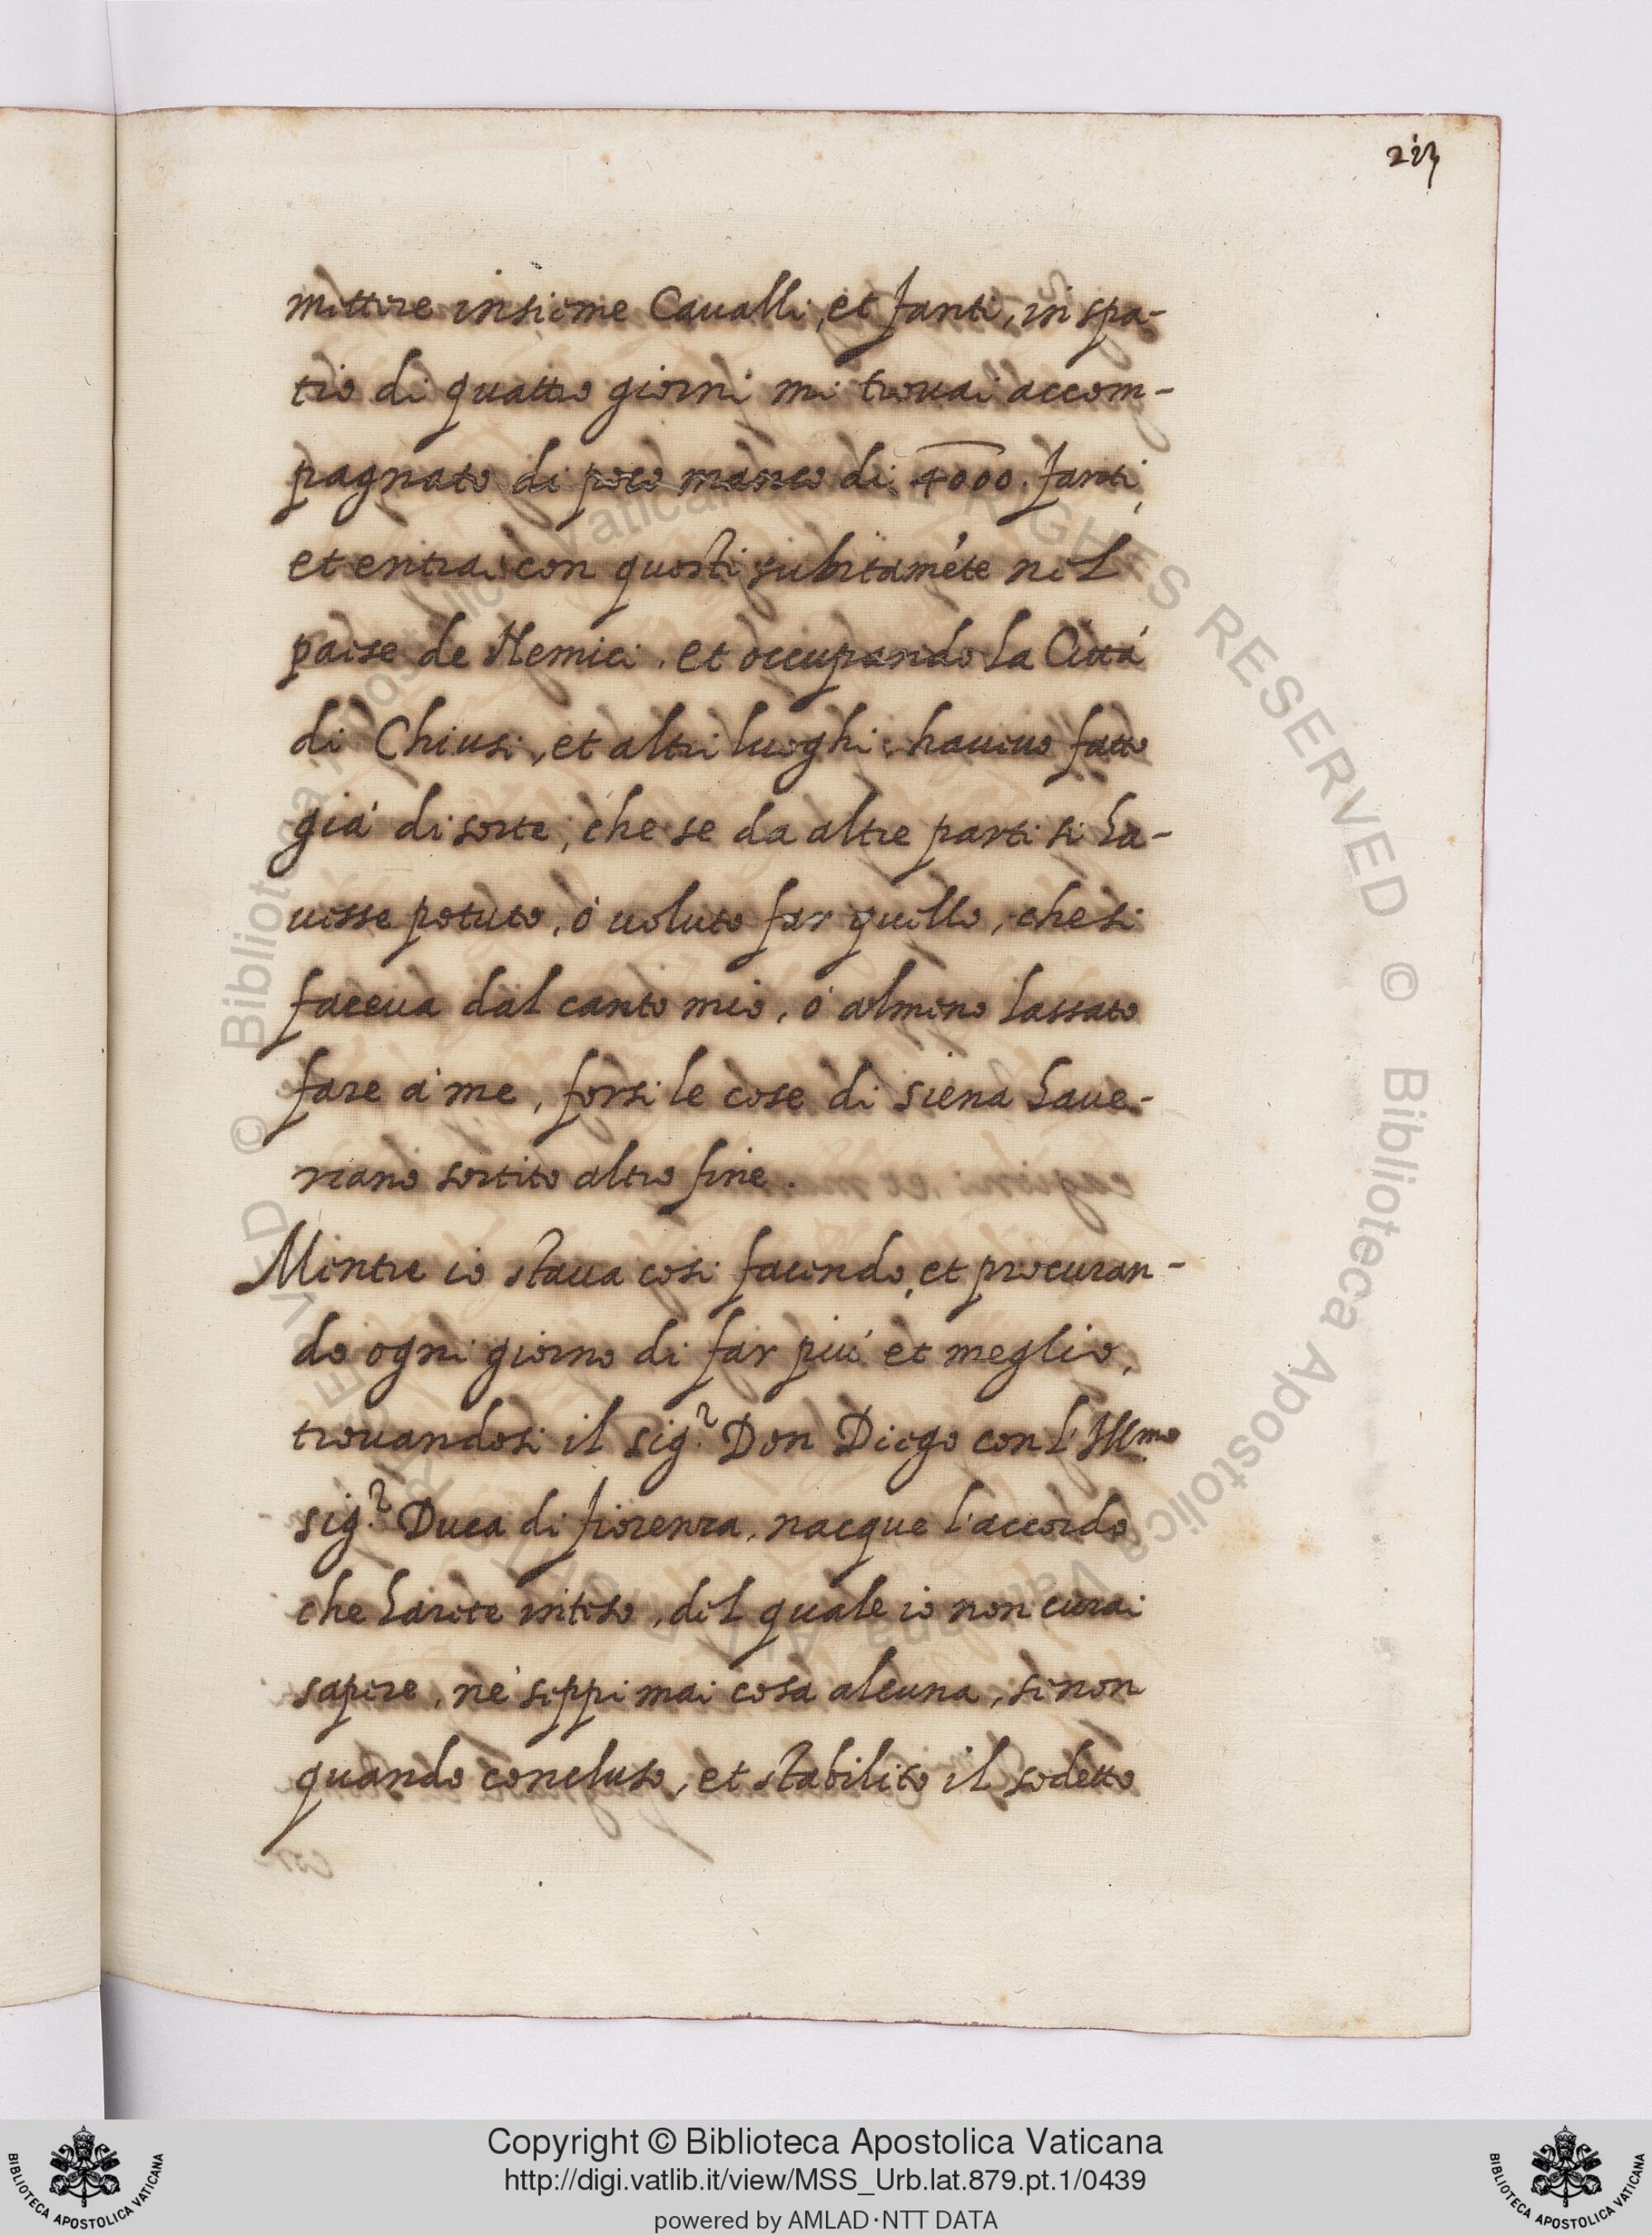 213
mettere insieme Caualli, et fanti, in spa-
tio di quattro giorni mi trouai accom-
pagnato di poco manco di 4000. fanti,
et entrai con questi subitamẽte nel
paese de Nemici, et occupando la Città
di Chiusi, et altri luoghi haueuo fatto
già di sorte, che se da altre parti si ha-
uesse potuto, ò uoluto far quello, che si
faceua dal canto mio, ò almeno lassato
fare à me, forsi le cose di siena haue-
riano sortito altro fine.
Mentre io staua cosi facendo, et procuran-
do ogni giorno di far più et meglio,
trouandosi il sig.r Don Diego con l'Ill.mo
sig.r Duca di fiorenza, nacque l'accordo
che harete inteso, del quale io non curai
sapere, nè seppi mai cosa alcuna, se non
quando concluso, et stabilito il sodetto
© Biblioteca Apostolica Vaticana ALL RIGHTS RESERVED © Biblioteca Apostolica Vaticana ALL RIGHTS RESERVED
Copyright © Biblioteca Apostolica Vaticana
http://digi.vatlib.it/view/MSS_Urb.lat.879.pt.1/0439
powered by AMLAD·NTT DATA
BIBLIOTECA APOSTOLICA VATICANA
BIBLIOTECA APOSTOLICA VATICANA